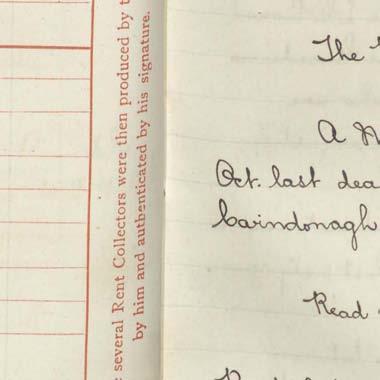 several Rent Collectors were then produced by
by him and authenticated by his signature.
The
A
Oct. last dea
Carndonagh
Read